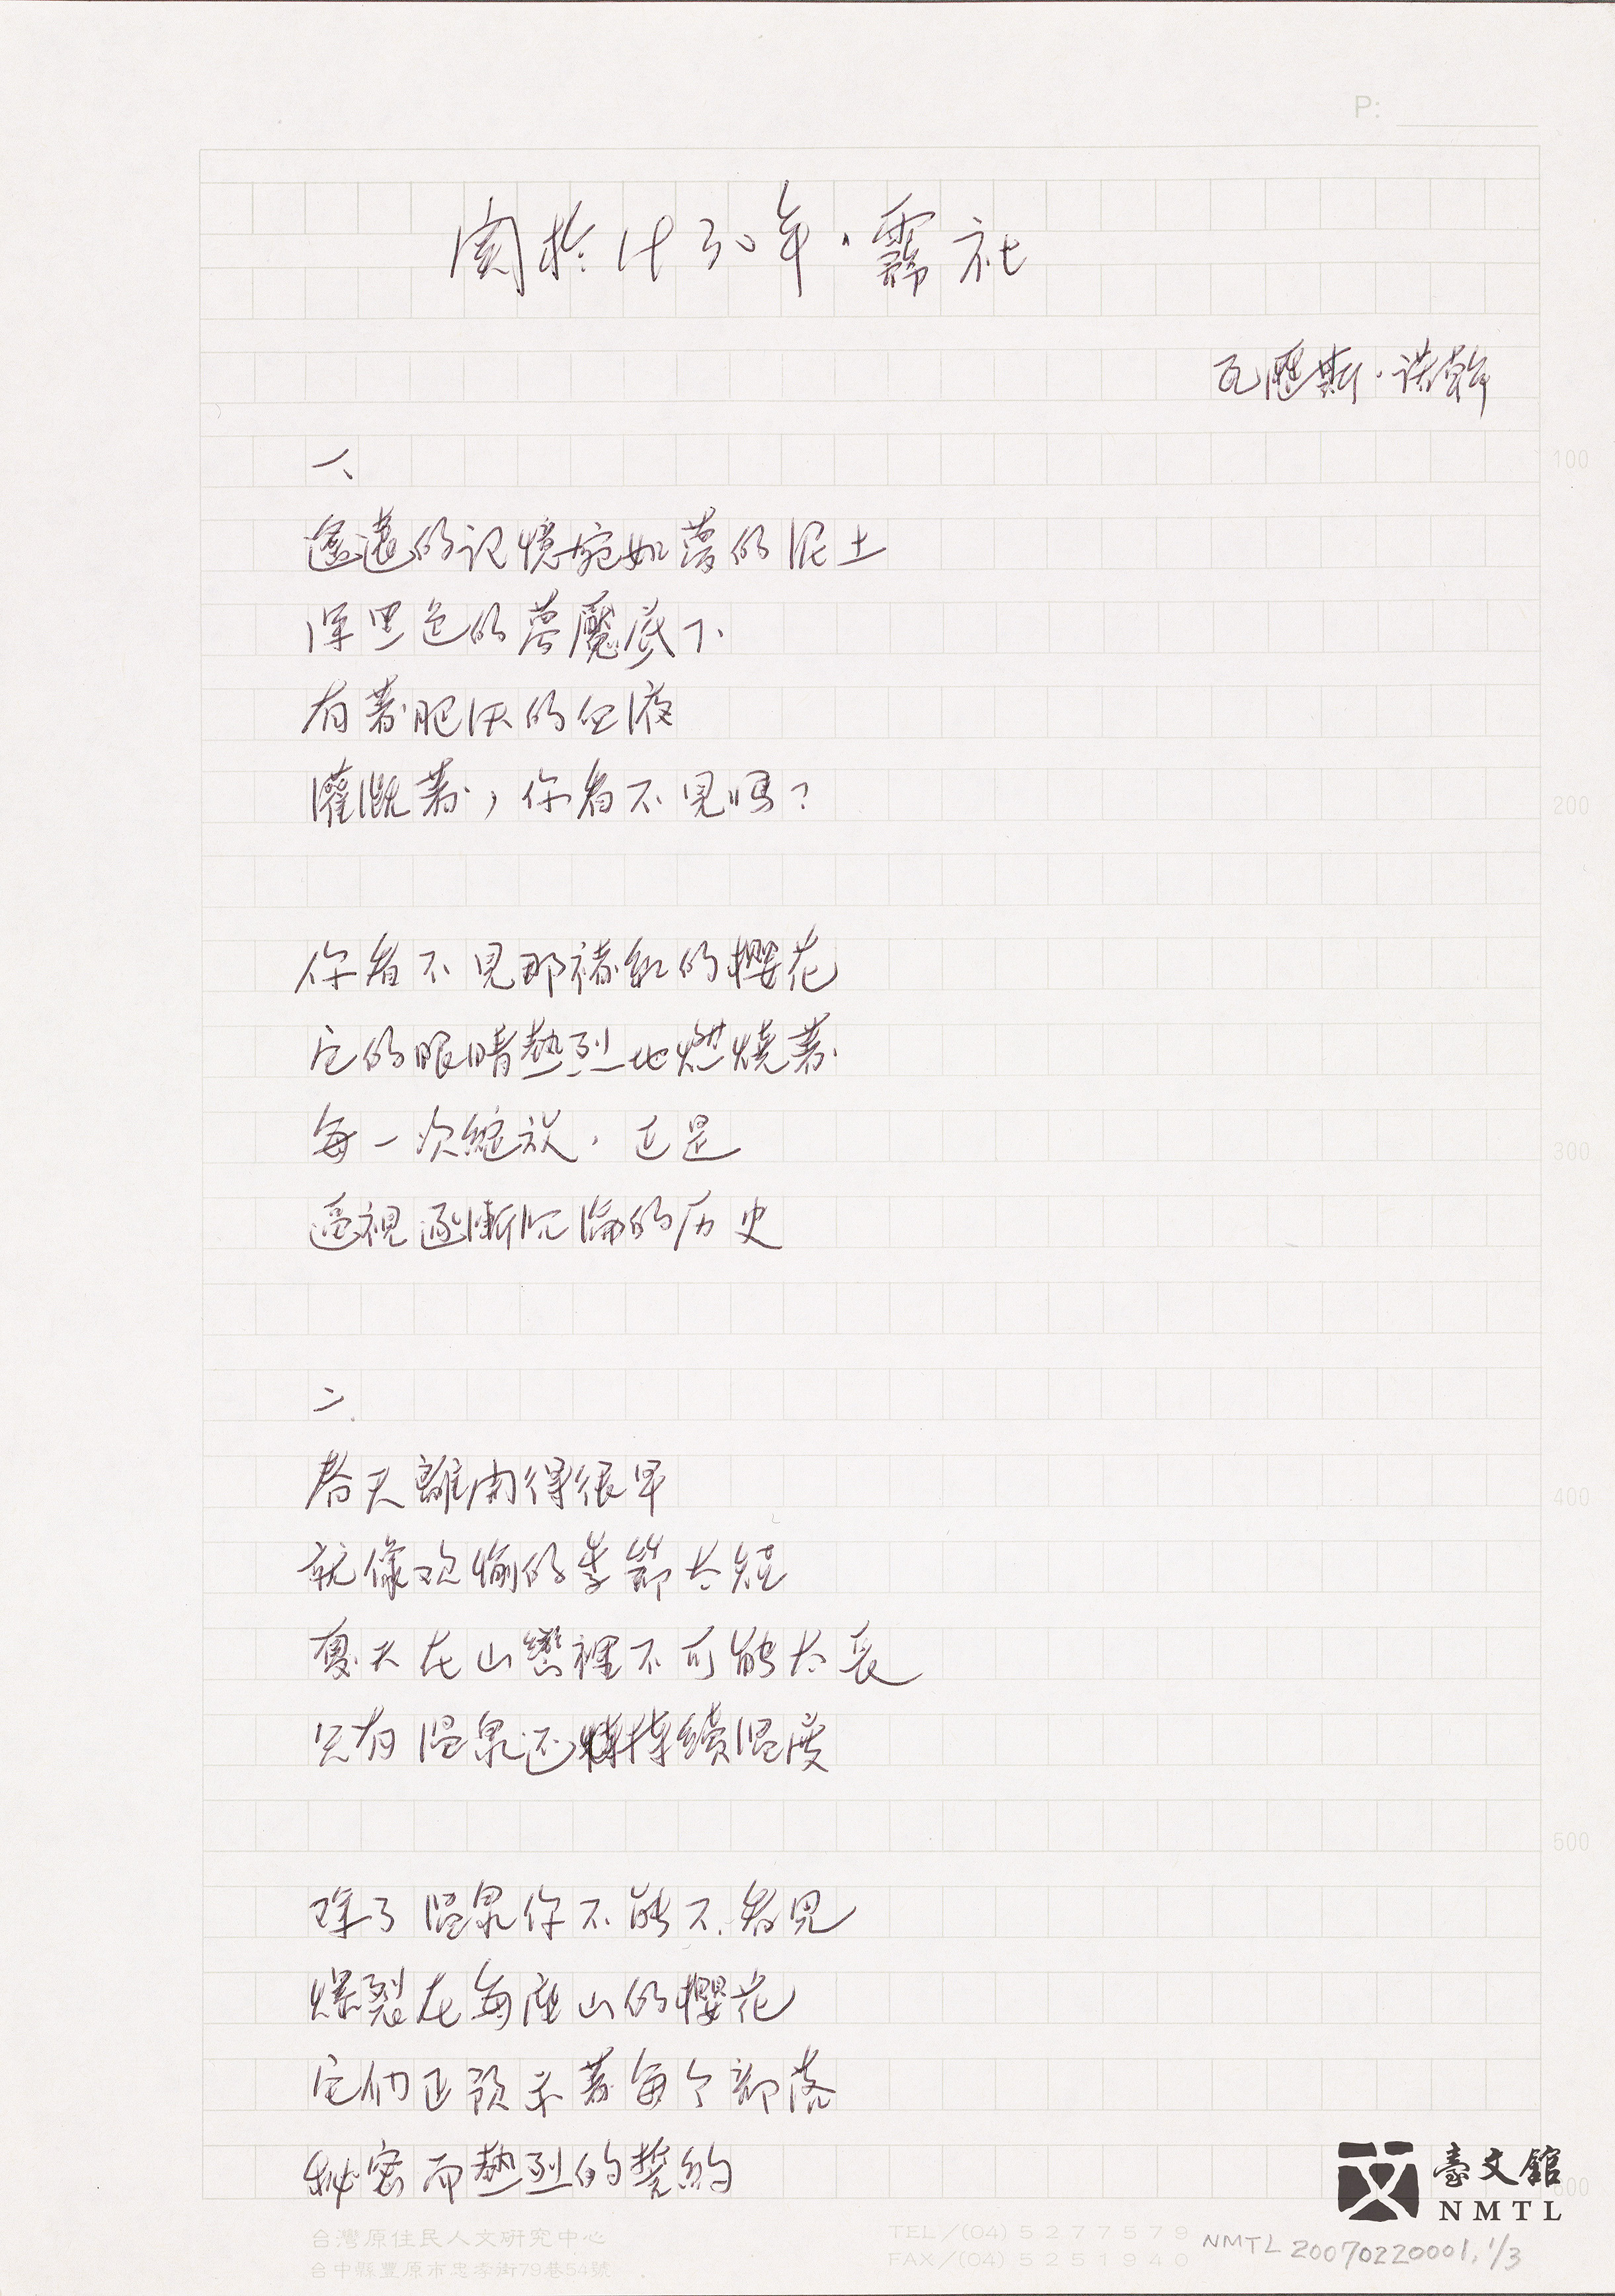 P:
關於1930年·霧社
瓦歷斯·諾幹
一、
遙遠的記憶宛如夢的泥土
深黑色的夢魘底下
有著肥沃的血液
灌溉著，你看不見嗎？
你看不見那緋紅的櫻花
它的眼睛熱烈地燃燒著
每一次綻放，正是
逼視逐漸沉淪的历史
二、
春天離開得很早
就像欢愉的季節太短
夏天在山巒裡不可能太長
只有溫泉还持續溫度
除了溫泉你不能不看見
爆裂在每座山的櫻花
它們正預示著每个部落
秘密而熱烈的誓約
100
200
300
400
500
600
台灣原住民人文研究中心
台中縣豐原市忠孝街79巷54號
TEL／(04)5277579
FAX／(04)5251940
臺文館
NMTL
NMTL20070220001,1/3